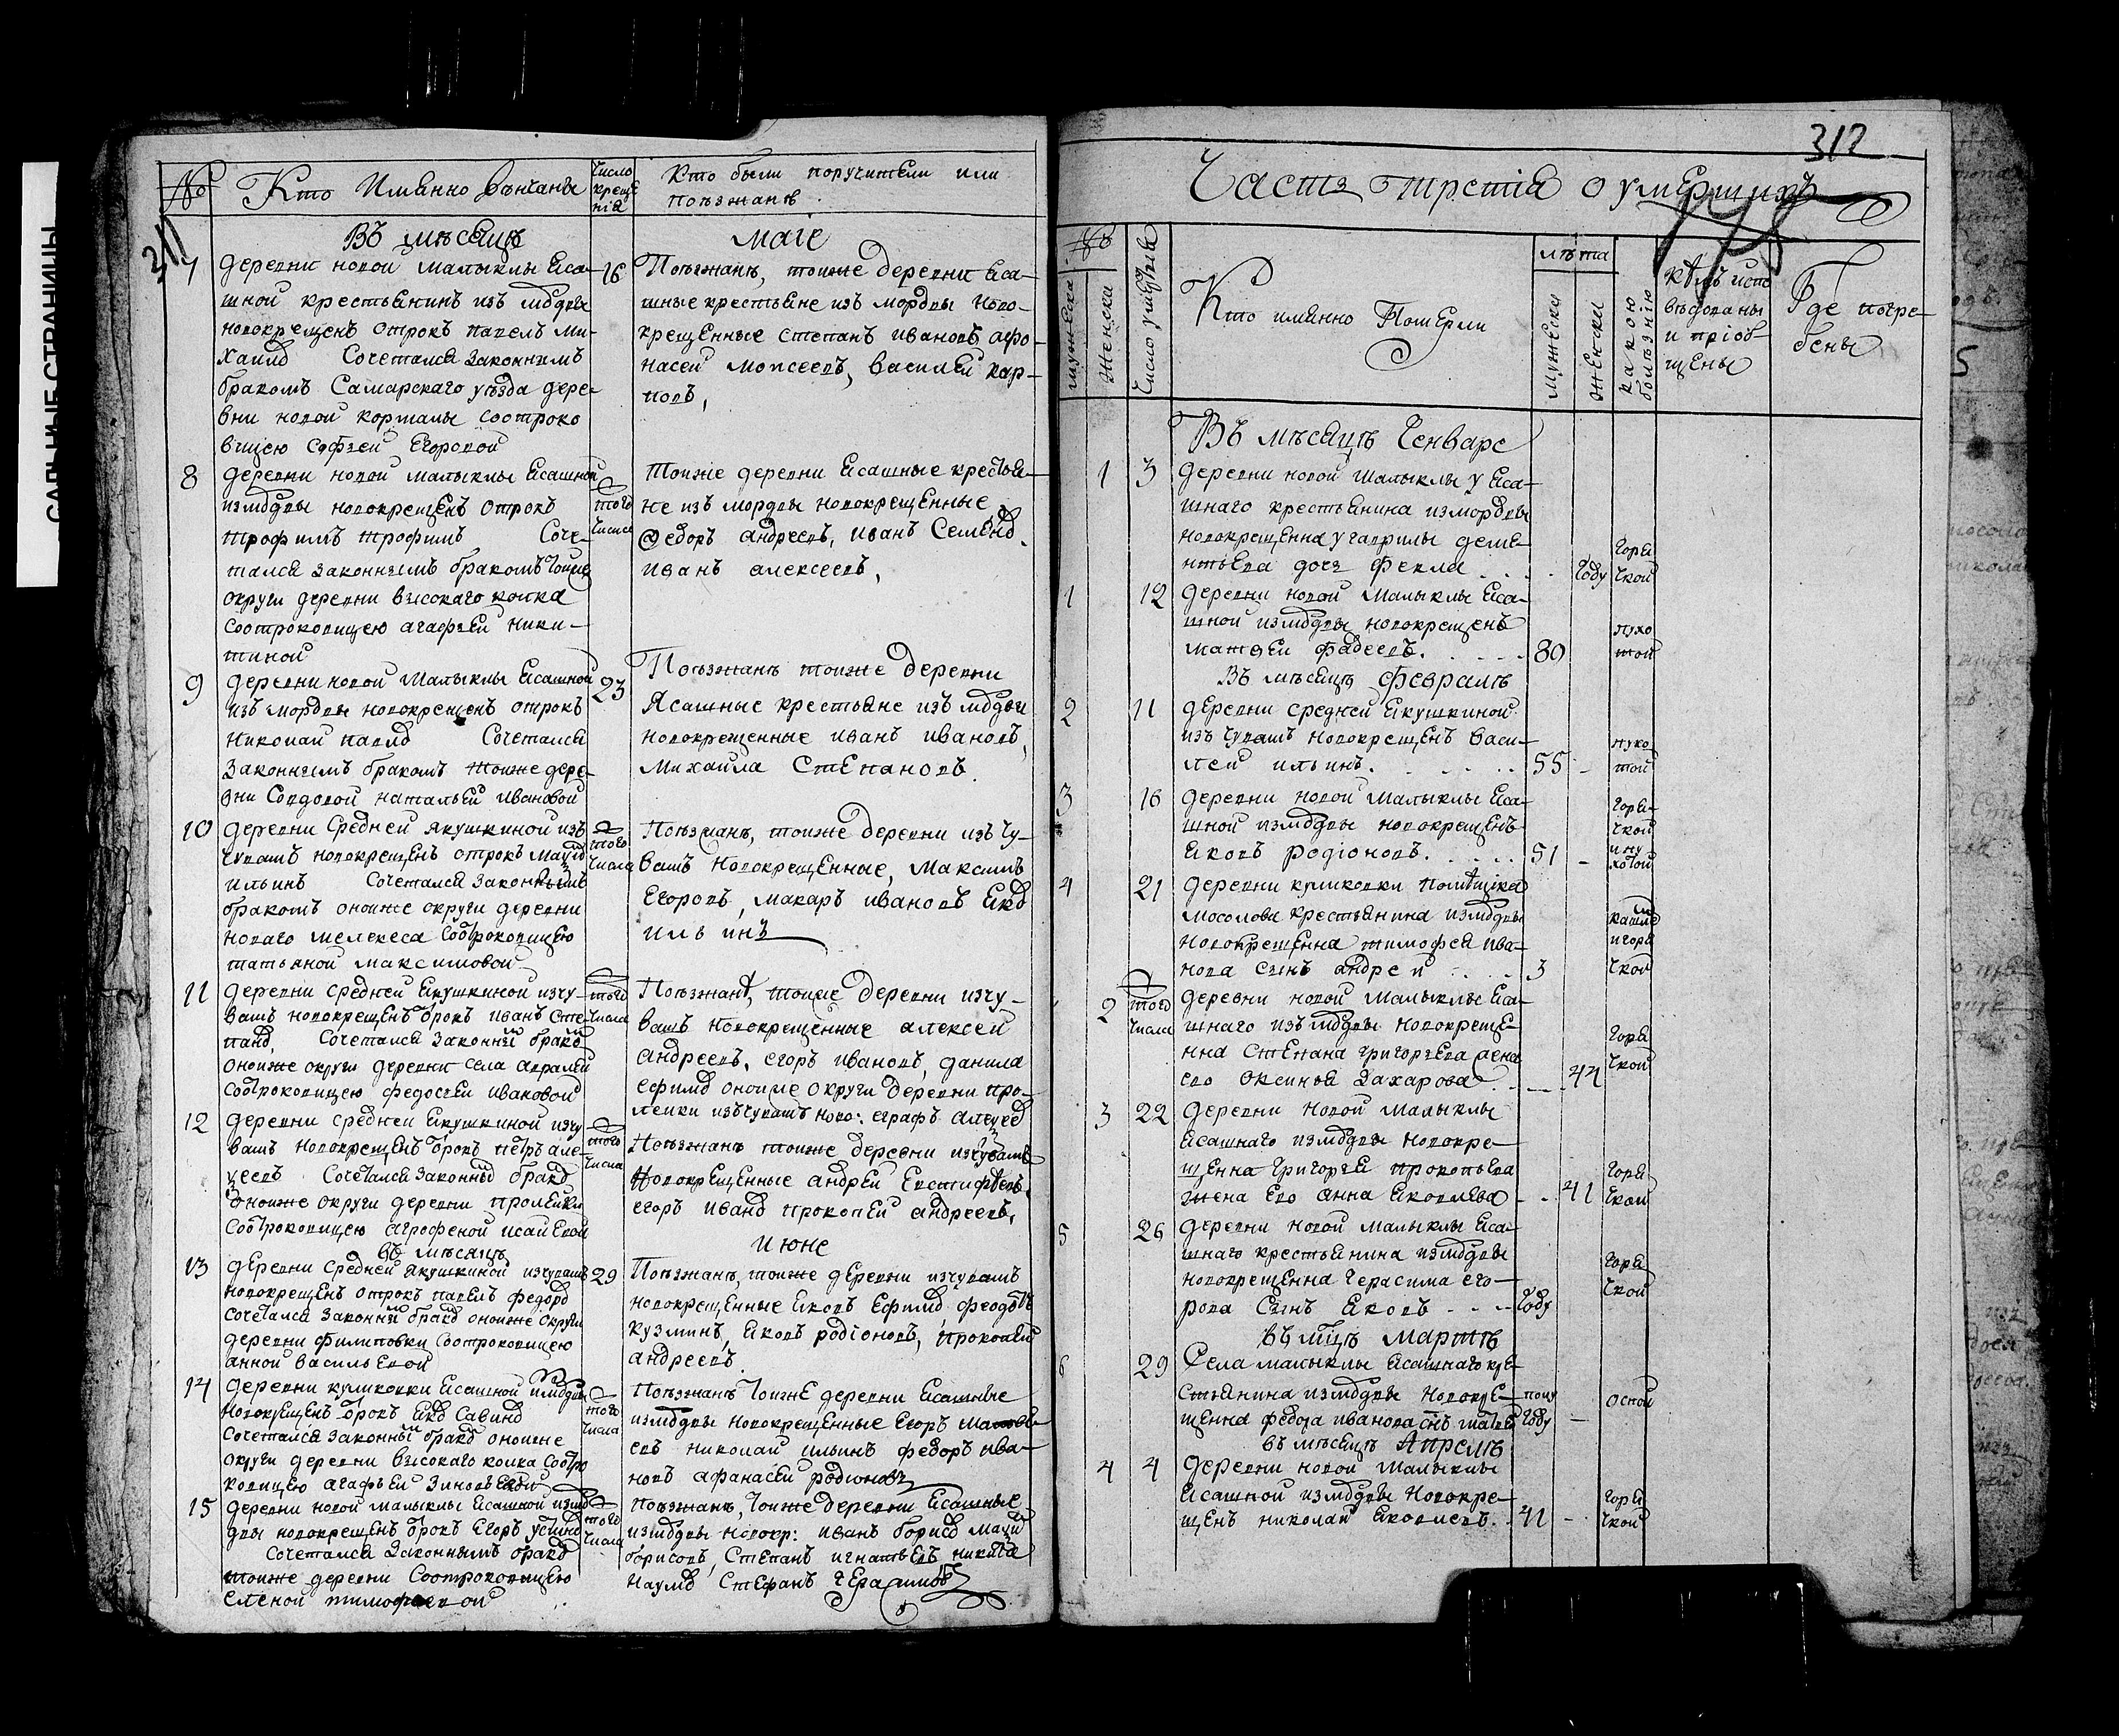 №
Кто Имянно венчаны
Число
креще
нія
Кто были поручители или
поѣзжанѣ.
Въ мѣсяцѣ
маіе
311
7
деревни новой малыклы яса-
шной крестьянинъ изъ мордвы
новокрещенъ отрокъ павелъ ми-
хаилд Сочетался законнымъ
бракомъ Самарскаго уѣзда дере-
вни новой кормалы соотроко
вицею софьей Егоровой
16
Поѣзжанѣ, тоиже деревни яса-
шные крестьяне изъ мордвы ново-
крещенные степанъ ивановъ, афо-
насеи моисеевъ, василеи кар-
повъ,
8
деревни новой малыклы ясашной
измордвы новокрещенъ отрокъ
трофимъ трофимъ Соче-
тался законнымъ бракомъ тоиже
округи деревни высокаго колка
соотроковицею агафьей ники-
тиной
того
числа
тоиже деревни ясашные крестья-
не изъ мордвы новокрещенные
Ѳедоръ андреевъ, иванъ Семенд.
иванъ алексеевъ,
9
деревни новой Малыклы ясашной
изъ мордвы новокрещенъ отрокъ
николаи павлд Сочетался
законнымъ бракомъ тоиже дере-
вни Содовой натальей ивановой
23
Поѣзжанѣ тоиже деревни
Ясашные крестьяне изъ мдвы
новокрещенные иванъ ивановъ,
михаила степановъ.
10
деревни Средней якушкиной изъ
чувашъ новокрещенъ отрокъ
ильинъ Сочетался законнымъ
бракомъ оноиже округи деревни
новаго мелекеса соотроковицею
татьяной максимовой
того
числа
Поѣзжанѣ, тоиже деревни изъ чу-
вашъ новокрещенные, Максимъ
Егоровъ, макаръ ивановъ
ильинъ
11
деревни средней якушкиной изчу-
вашъ новокрещенъ отрокъ иванъ сте
панд, Сочетался законнй бракд
оноиже округи деревни села авралеи
соотроковицею федосьей ивановой
того
числа
Поѣзжанѣ, тоиже деревни изчу-
вашъ новокрещенные алексеи
андреевъ, егоръ ивановъ, данила
ефимд оноиже округи деревни про-
леики изъчувашъ ново: еграфъ
12
деревни средней якушкиной изчу
вашъ новокрещенъ отрокъ петръ але
ксеевъ Сочетался законнй бракд
оноиже округи деревни пролейки
соотроковицею агрофеной исаиевой
того
числа
Поѣзжанѣ тоиже деревни изчувашъ
Новокрещенные андреи Евстифѣевъ,
егоръ иванд прокопеи андреевъ,
въ мѣсяцѣ
июне
13
деревни средней якушкиной изчувашъ
новокрещенъ отрокъ павелъ федорд
сочетался законнй бракд оноиже округи
деревни филиповки соотроковицею
анной васильевой
29
Поѣзжанѣ, тоиже деревни изчувашъ
новокрещенные яковъ Ефимд
кузминъ, яковъ родіоновъ, прокопеи
андреевъ
14
деревни куликовки ясашной измдвы
новокрещенъ отрокъ Савинд
сочетался законнй бракд оноиже
округи деревни высокаго колка соотро
ковицею агафьей зиновьевой
того
числа
Поѣзжанѣ тоиже деревни ясашные
измдвы новокрещенные Егоръ матве-
евъ николаи ильинъ федоръ ива-
новъ афанасеи родионовъ
15
деревни новой малыклы ясашной измд
двы новокрещенъ отрокъ егоръ устинд
Сочетался законнымъ бракд
тоиже деревни соотроковицею
еленой тимофеевой
того
числа
Поѣзжанѣ, тоиже деревни ясашные
измдвы новокр: иванъ борисд
борисовъ, степанъ игнатьевъ, никита
наумд Стефанъ герасимовъ
312
Часть третія о умершихъ
№
мужеска
женска
Число умертвія
Кто имянно Померли
лѣта
мужески
женски
какою
болѣзнію
Кѣмъ испо
вѣдованы
и пріоб-
щены
Где погре-
бены
Въ мѣсяцѣ Генваре
1
3
деревни новой малыклы у яса-
шнаго крестьянина измордвы
новокрещенна у гаврилы деме-
нтьева дочь Фекла
году
горя
чкой
1
12
деревни новой малыклы яса-
шной измдвы новокрещенъ
матвеи фадеевъ.
80
пухо
той
Въ мѣсяцѣ Февралѣ
2
11
деревни средней якушкиной
изъ чувашъ новокрещенъ васи-
леи ильинъ.
55
пухо
той
3
16
деревни новой малыклы яса-
шной измдвы новокрещенъ
яковъ родіоновъ.
51
горя-
чкой
и пу
хотой
4
21
деревни куликовки помѣщика
мосолова крестьянина измдвы
новокрещенна тимофея ива-
нова сынъ андреи
3
кашле
игоря
чкой
2
того
числа
деревни новой малыклы яса-
шнаго изъ мдвы новокреще-
нна степана григорьева жена
его оксинья захарова
44
горя
чкой
3
22
деревни новой малыклы
ясашнаго измдвы новокре-
щенна григорья прокопьева
жена Его анна яковлева
41
горя
чкой
5
26
деревни новой малыклы яса-
шнаго крестьянина измдвы
новокрещенна герасима его-
рова сынъ яковъ
году
горя
чкой
въ мцѣ мартѣ
6
29
Села малыклы ясашнаго кре-
стьянина измдвы новокре-
щенна федора иванова снъ матвеи
полу
году
оспой
въ мѣсяцѣ Апрелѣ
4
4
деревни новой малыклы
ясашной измдвы новокре-
щенъ николаи яковлевъ.
41
горя
чкой